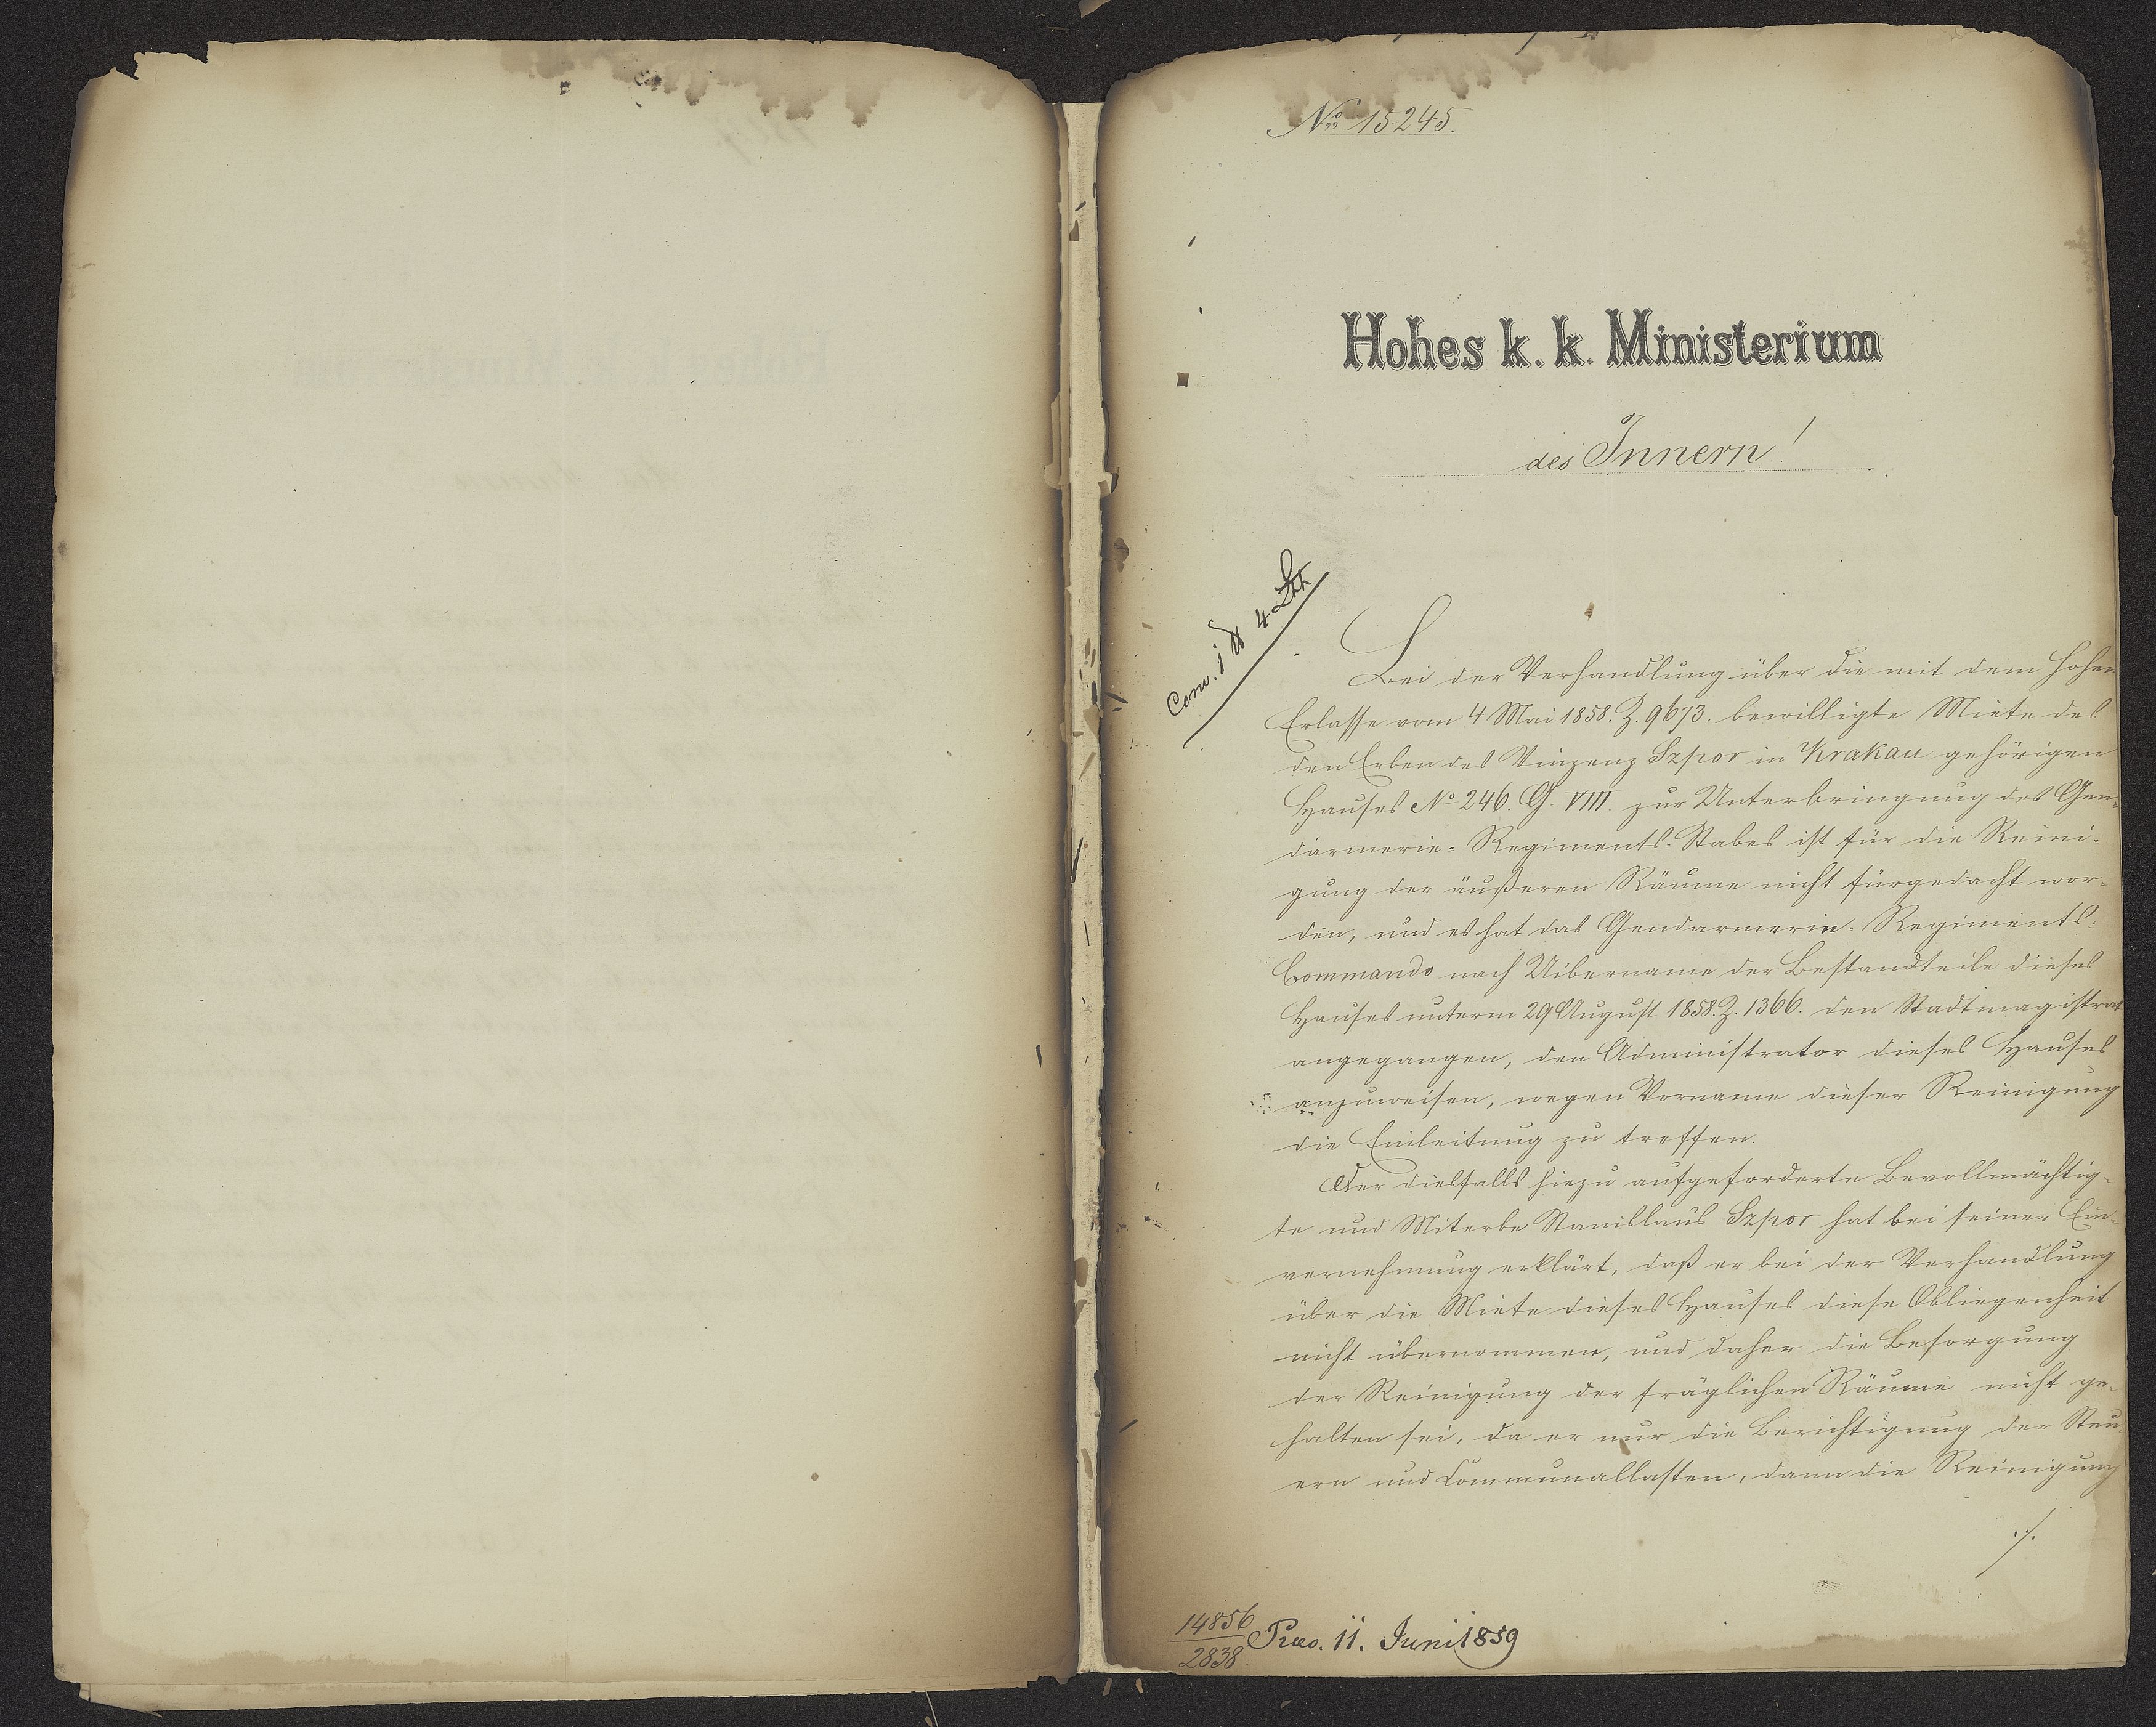 No 15245.
Hohes k. k. Ministerium
des Innern!
Conv. 1 ℔ 4 Lth
Bei der Verhandlung über die mit dem hohen
Erlasse vom 4 Mai 1858. Z. 9673. bewilligte Miete des
den Erben des Vinzenz Szpor in Krakau gehörigen
Hauses No 246. G. VIII. zur Unterbringung des Gen=
darmerie=Regiments=Stabes ist für die Reini-
gung der äußeren Räume nicht fürgedacht wor-
den, und es hat das Gendarmerie-Regiments-
Commando nach Uibername der Bestandteile dieses
Hauses unterm 29 August 1858. Z. 1366. den Stadtmagistrat
angegangen, den Administrator dieses Hauses
anzuweisen, wegen Vorname dieser Reinigung
die Einleitung zu treffen.
Der diesfalls hiezu aufgeforderte Bevollmächtig-
te und Miterbe Stanislaus Szpor hat bei seiner Ein-
vernehmung erklärt, daß er bei der Verhandlung
über die Miete dieses Hauses diese Obliegenheit
nicht übernommen, und daher die Besorgung
der Reinigung der fräglichen Räume nicht ge-
halten sei, da er nur die Berichtigung der Steu
ern und Communallasten, dann die Reinigung
./.
14856
2838
Praes. 11. Juni 1859